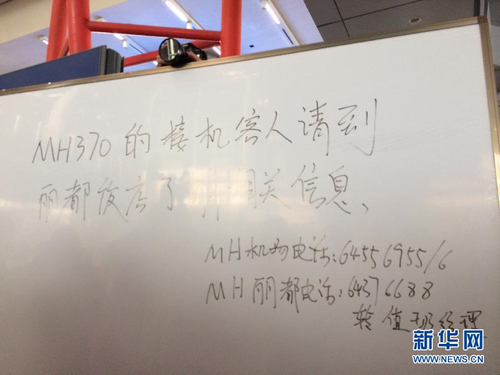 MH370的接机客人请到
丽都饭店了解相关信息、
MH机场电话:64556955/6
MH丽都电话:64376688
转值班经理
新华网
WWW.NEWS.CN